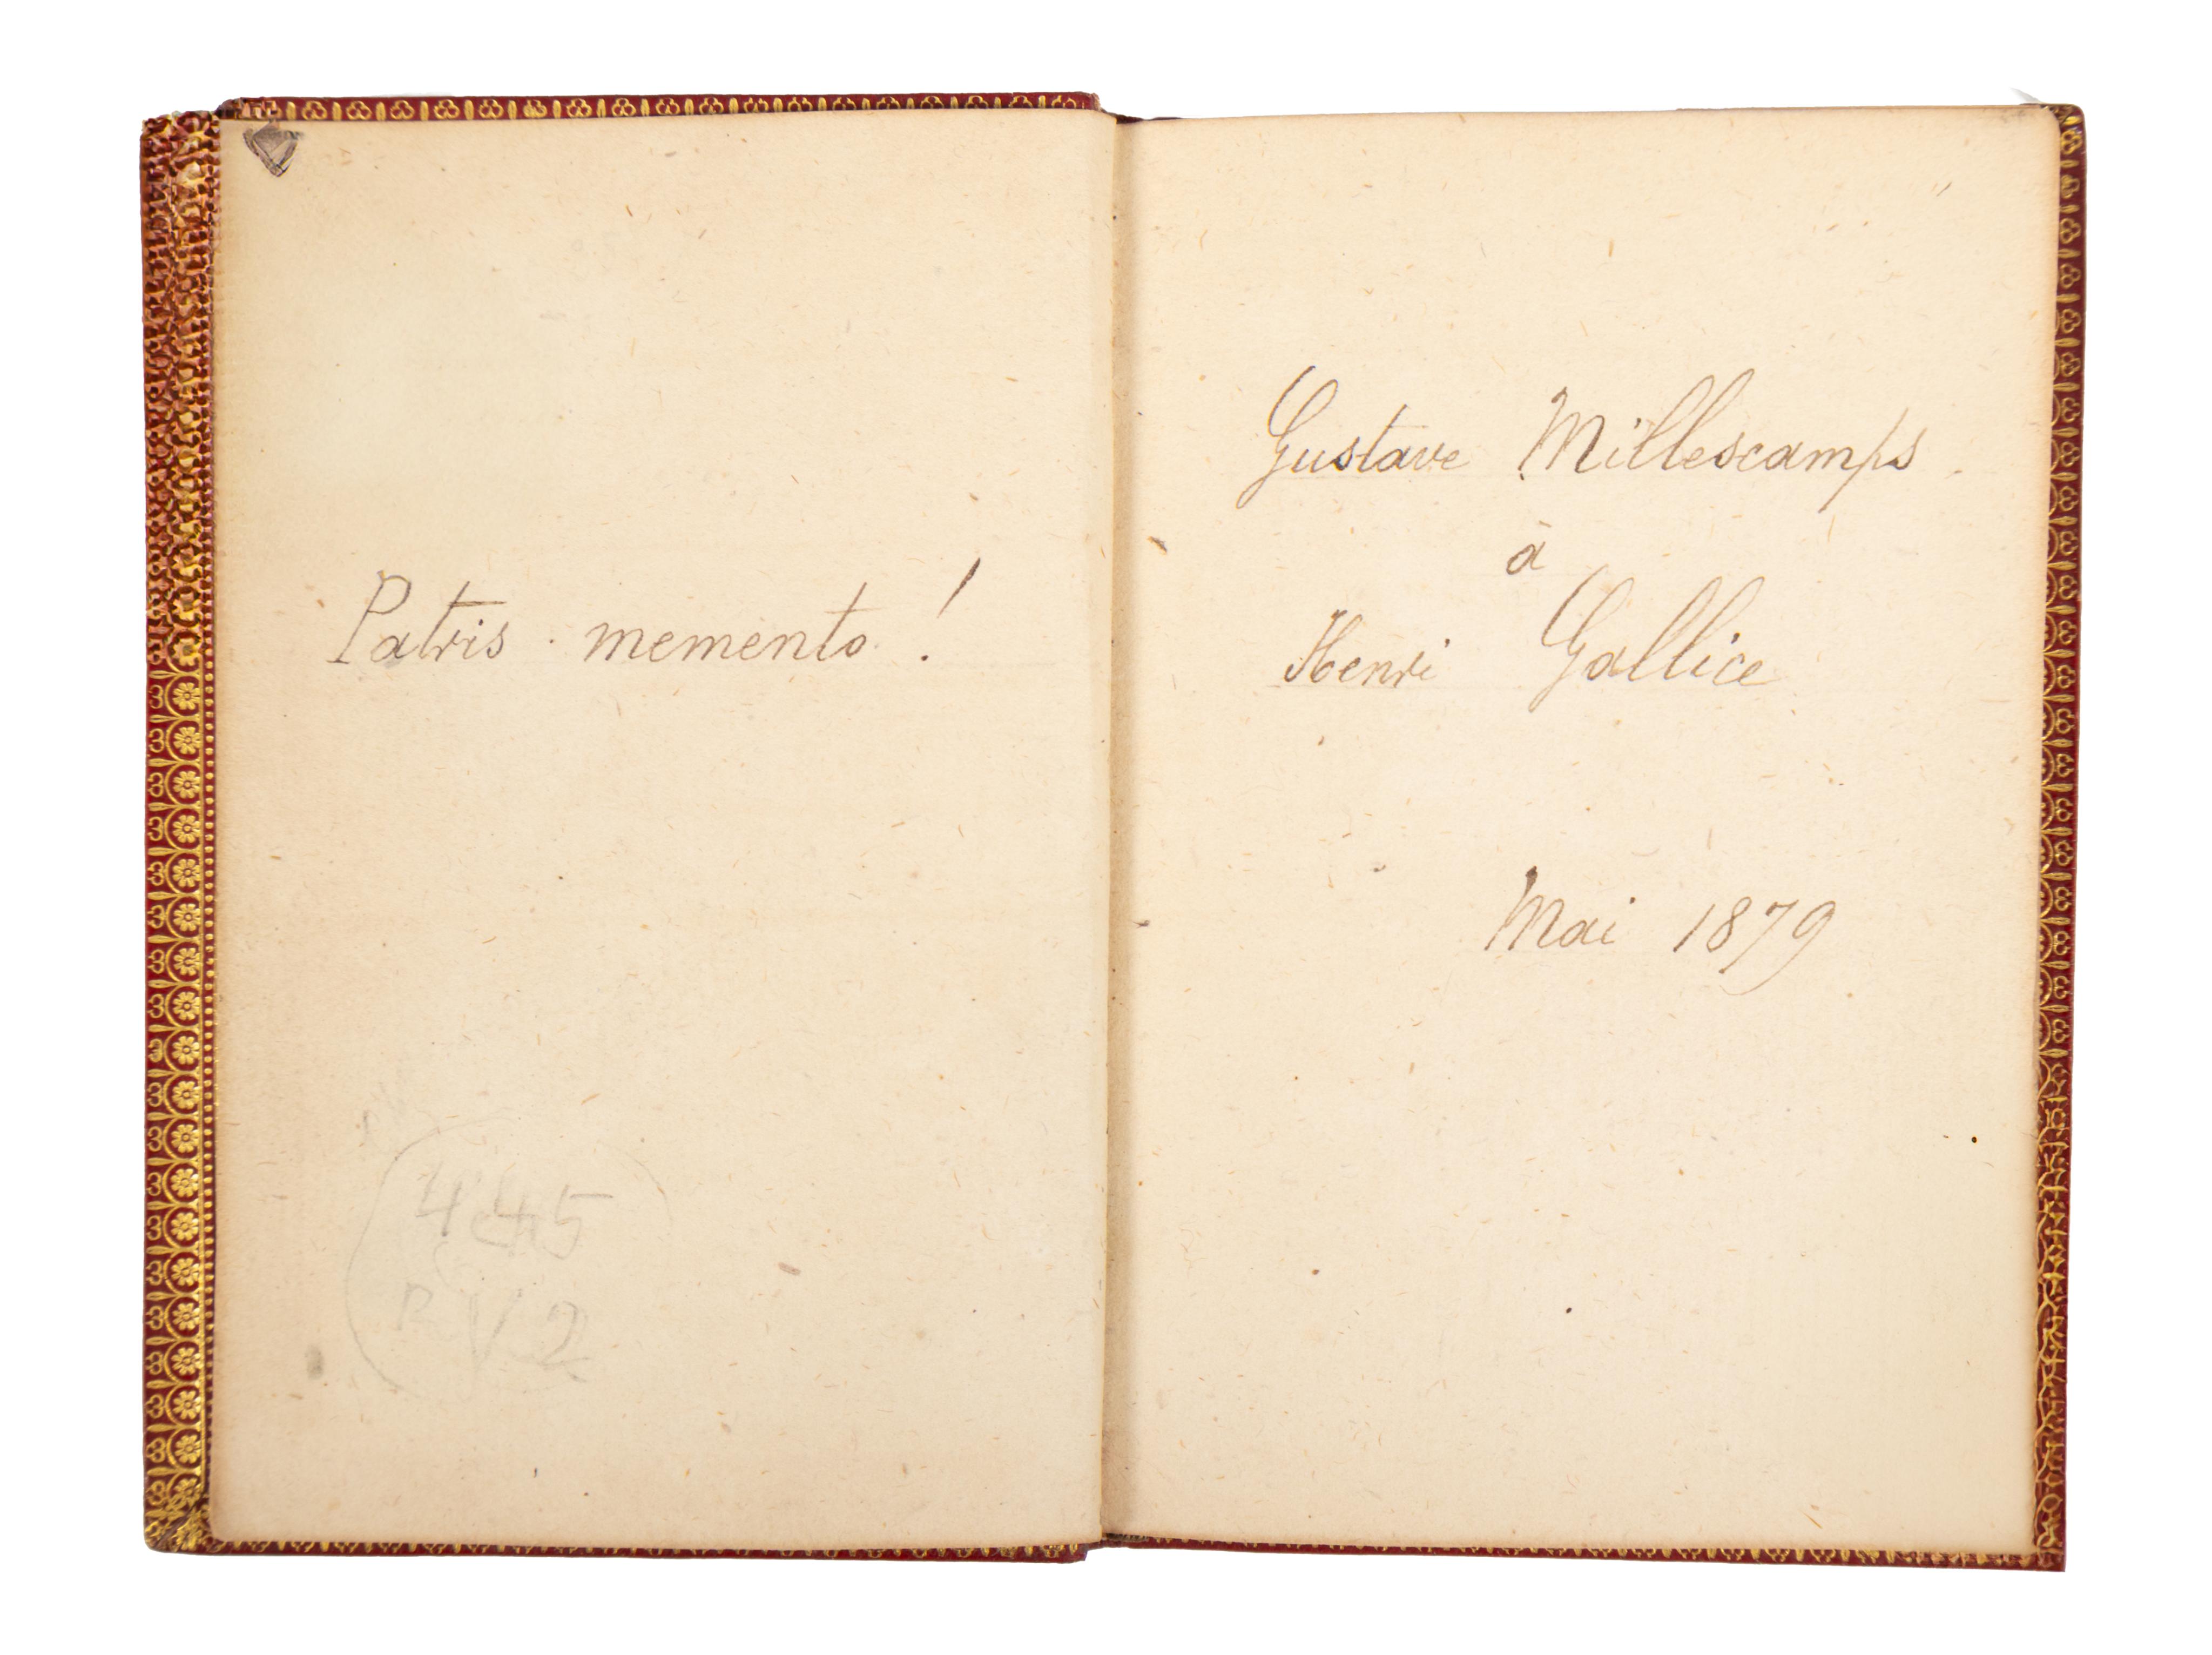 Patris memento !
445
Gustave Millescamps
à
Henri Gallice
Mai 1879